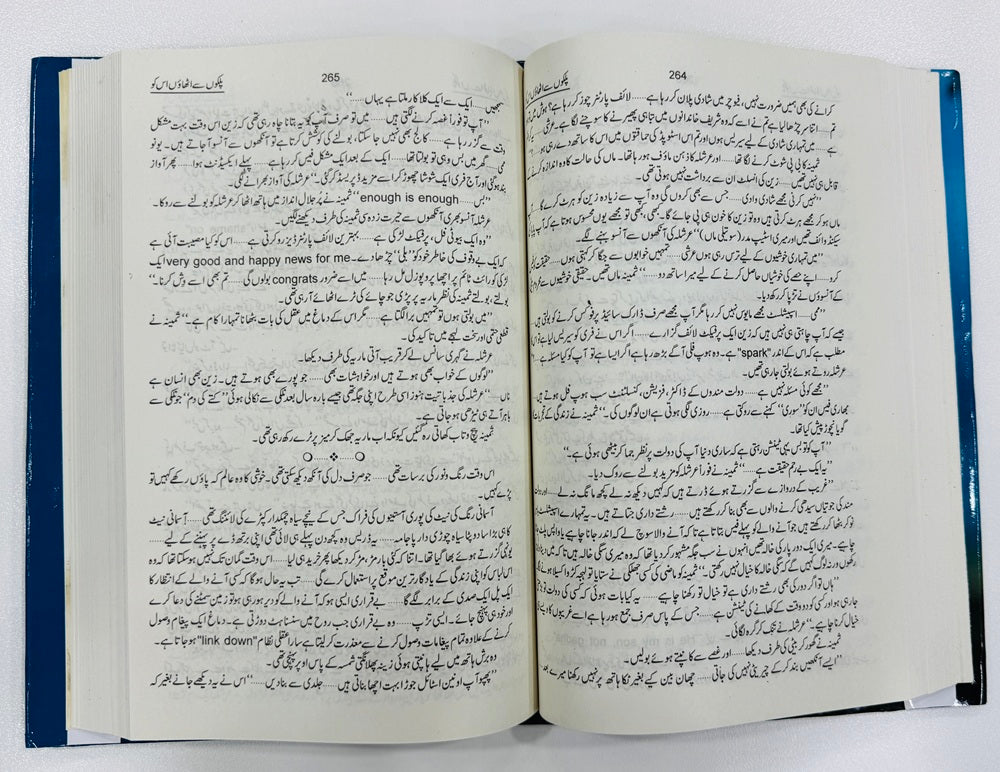 264
پلکوں سے اٹھاؤں
کرانے کی بھی ہمیں ضرورت نہیں، فیوچر میں شادی پلان کر رہا ہے...... لائف پارٹنر چوز کر رہا ہے؟ ہوش میں
تم...... اتنا سر چڑھالیا ہے تم نے اسے کہ وہ شریف خاندانوں میں تباہی پھیرنے کا سوچنے لگا ہے۔ عرشی
ہے...... میں تمہاری شادی کے لیے سیریس ہوں اور تم اس اسٹوپڈ کی حماقتوں میں اس کا ساتھ دے رہی ہو
ثمینہ کا بی پی شوٹ کرنے لگا تھا...... اور عرشلہ کا ذہن ماؤف ہو رہا تھا۔ ماں کی حالت کا وہ اندازہ کرنے
قابل ہی نہیں تھیں...... زین کی انسلٹ ان سے برداشت نہیں ہوئی تھی۔
”نہیں کرنی مجھے شادی وادی...... جس سے بھی کروں گی وہ آپ سے زیادہ زین کو ہرٹ کرے گا۔
ماں ہو کر مجھے ہرٹ کرتی ہیں وہ تو زین کا خون ہی پی جائے گا۔ بھی، بھی تو مجھے یوں محسوس ہوتا ہے کہ آپ
سیکنڈ وائف تھیں اور میری اسٹیپ مدر (سوتیلی ماں)“ عرشلہ کی آنکھوں سے آنسو بہنے لگے۔
”میں تمہاری خوشیوں کے لیے ترس رہی ہوں عرشی...... تمہیں خوابوں سے جگا کر کہتی ہوں...... حقیقت
کرو...... اپنے حصے کی خوشیاں حاصل کرنے کے لیے میرا ساتھ دو......“ ثمینہ ماں تھیں۔ حقیقی خوشیوں سے
کے آنسوؤں نے تڑپا کر رکھ دیا۔
”ممی...... اسپیشلٹ مجھے مایوس نہیں کر رہا مگر آپ مجھے صرف ڈارک سائیڈ پر فوکس کرنے کو بولتی ہیں
جیسے کہ آپ چاہتی ہی نہیں ہیں کہ زین ایک پرفیکٹ لائف گزارے...... اگر اس نے فری کو سیریس لیا ہے اس
مطلب ہے کہ اس کے اندر "spark" ہے۔ وہ ہوپ فلی آگے بڑھ رہا ہے اگر ایسا ہے تو آپ کو کیا مسئلہ ہے“
عرشلہ روتے ہوئے بولتی جا رہی تھیں۔
”مجھے کوئی مسئلہ نہیں ہے...... دولت مندوں کے ڈاکٹر، فزیشن، کنسلٹنٹ سب ہوپ فل ہوتے ہیں
بھاری فیس ان کو ”سوری“ کہنے سے روکتی ہے...... روزی لگی ہوئی ہے ان لوگوں کی۔“ ثمینہ نے زندگی کے
گویا نچوڑ پیش کیا تھا۔
”آپ کو تو بس یہی ٹینشن رہتی ہے کہ ساری دنیا آپ کی دولت پر نظر جما کر بیٹھی ہوئی ہے۔“
”یہ ایک بے رحم حقیقت ہے......“ ثمینہ نے فوراً عرشلہ کو مزید بولنے سے روک دیا۔
”غریب کے دروازے سے گزرتے ہوئے ڈرتے ہیں کہ کہیں دیکھ نہ لے کچھ مانگ نہ لے...... اور
مندی جوتیاں سیدھی کرنے والوں سے بھی بنا کر رکھتے ہیں...... رشتے داری جتاتے ہیں۔ یہ تمہارے اسپیشلٹ
نوکر بٹھا کر رکھتے ہیں جو آنے والے کو پہلے فیس بتاتا ہے تاکہ آنے والا سوچ لے کہ اندر جانا چاہیے یا واپس پلٹ
چاہیے۔ میری ایک دور پار کی خالہ تھیں انہوں نے سب جگہ مشہور کر دیا تھا کہ وہ میری سگی خالہ ہیں تاکہ میں
رکھوں ورنہ لوگ کہیں گے کہ سگی خالہ کا خیال نہیں رکھتی۔“ ثمینہ کو ماضی کی کسی جھلکی نے ستایا تو لہجہ کڑوا کسیلا ہو گیا
”ہاں تو اگر دور کی بھی رشتے داری ہے تو خیال تو رکھنا چاہیے...... یہ کیا بات ہوئی کہ کسی کی دولت
جا رہی ہو اور کسی کو دو وقت کے کھانے کی ٹینشن ہے...... جس کے پاس صرف جمع ہو رہا ہے اسے غریبوں کا
خیال کرنا چاہیے۔“ عرشلہ نے تنک کر گرہ لگائی۔
ثمینہ نے گھور کر بیٹی کی طرف دیکھا...... اور غصے سے کانپتے ہوئے بولیں۔
”ایسے آنکھیں بند کر کے چیریٹی نہیں کی جاتی...... چھان بین کیے بغیر ٹکا ہاتھ پر نہیں رکھنا میرے
265
پلکوں سے اٹھاؤں اس کو
سمجھیں...... ایک سے ایک کلاکار ملتا ہے یہاں......“
”آپ تو فوراً غصہ کرنے لگتی ہیں...... میں تو صرف آپ کو یہ بتانا چاہ رہی تھی کہ زین اس وقت بہت مشکل
وقت سے گزر رہا ہے...... کالج بھی نہیں جا سکتا، بولنے کی کوشش کرتا ہے تو آنکھوں سے آنسو آ جاتے ہیں۔ یو نو
ممی...... گھر میں بس وہی تو بولتا تھا...... ایک کے بعد ایک مشکل فیس کر رہا ہے...... پہلے ایکسیڈنٹ ہوا...... پھر آواز
بند ہو گئی اور آج فری ایک شوشا چھوڑ کر اسے مزید ڈپریسڈ کر گئی۔“ عرشلہ کی آواز بھرانے لگی۔
”بس...... enough is enough“ ثمینہ نے پر جلال انداز میں ہاتھ اٹھا کر عرشلہ کو بولنے سے روکا۔
عرشلہ آنسو بھری آنکھوں سے حیرت زدہ سی ثمینہ کی طرف دیکھنے لگیں۔
”وہ ایک بیوٹی فل، پرفیکٹ لڑکی ہے...... بہترین لائف پارٹنر ڈیزرو کرتی ہے...... اس کو کیا مصیبت آئی ہے
کہ ایک بے وقوف کی خاطر خود کو ”بلی“ چڑھا دے۔ very good and happy news for me ایک
لڑکی کو رائٹ ٹائم پر اچھا پروپوزل مل رہا...... میں اسے ضرور congrats بولوں گی...... تم بھی اسے وش کرنا۔“
بولتے، بولتے ثمینہ کی نظر ماریہ پر پڑی جو چائے کی ٹرے اٹھائے آ رہی تھی۔
”میں بولتی ہوں تو تمہیں برا لگتا ہے...... مگر اس کے دماغ میں عقل کی بات بٹھانا تمہارا کام ہے۔“ ثمینہ نے
قطعی حتمی اور سخت لہجے میں تاکید کی۔
عرشلہ نے گہری سانس لے کر قریب آتی ماریہ کی طرف دیکھا۔
”لوگوں کے خواب بھی ہوتے ہیں اور خواہشات بھی...... جو پورے بھی ہوتے ہیں۔ زین بھی انسان ہے
ماں......“ عرشلہ کی جذباتیت ہنوز اسی طرح اپنی جگہ تھی جیسے بارہ سال بعد نلکی سے نکالی ہوئی ”کتے کی دم“ جو نلکی سے
باہر آتے ہی ٹیڑھی ہو جاتی ہے۔
ثمینہ پیچ و تاب کھاتی رہ گئیں کیونکہ اب ماریہ جھک کر میز پر ٹرے رکھ رہی تھی۔
اس وقت رنگ و نور کی برسات تھی...... جو صرف دل کی آنکھ دیکھ سکتی تھی۔ خوشی کا وہ عالم کہ پاؤں رکھے کہیں تو
پڑے کہیں۔
آسمانی رنگ کی نیٹ کی پوری آستینوں کی فراک جس کے نیچے سیاہ چمکدار کپڑے کی لائننگ تھی...... آسمانی نیٹ
کا ہی بڑا سا دوپٹا سیاہ چوڑی دار پاجامہ...... یہ ڈریس وہ کچھ دن پہلے ہی لائی تھی اپنی برتھ ڈے پر پہننے کے لیے......
یونہی گزرتے ہوئے بھا گیا تھا۔ اتنا کہ کئی بار مڑ، مڑ کر دیکھا پھر خرید ہی لیا...... اس وقت گمان تک نہیں ہو سکتا تھا کہ وہ
اس لباس کو اپنی زندگی کے یادگار ترین موقع پر استعمال کرے گی...... تب یہ حال ہو گا کہ کسی آنے والے کے انتظار کا
ایک پل ایک صدی کے برابر لگے گا...... بے قراری ایسی ہو کہ آنے والے کو دیر ہو رہی ہو تو زمین سمٹنے کی دعا کرے
اور خود ہی پہنچ جائے۔ ایسی تڑپ...... وہ بے قراری جب روح میں سنسناہٹ دوڑتی ہے۔ دماغ ایک پیغام وصول
کرنے کے علاوہ تمام پیغامات وصول کرنے سے معذرت کر لیتا ہے سارا عقلی نظام "link down" ہو جاتا ہے۔
وہ برش ہاتھ میں لیے ہانپتی ہوئی زینہ پھلانگتی شمسہ کے پاس اوپر پہنچی تھی۔
”پھپو آپ اونین اسٹائل جوڑا بہت اچھا بناتی ہیں...... جلدی سے بنا دیں......“ اس نے یہ دیکھے جانے بغیر کہ